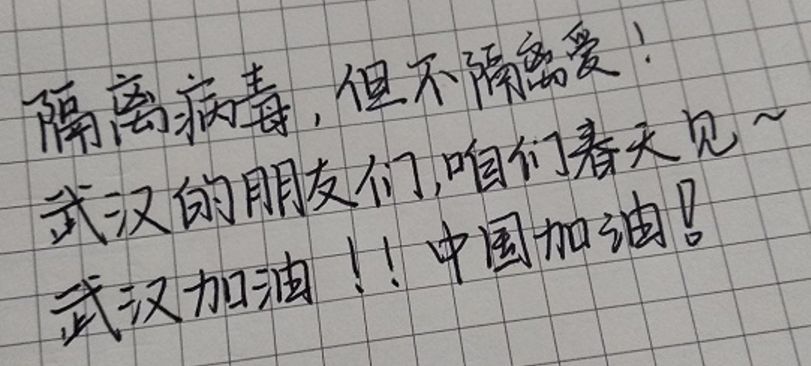 隔离病毒，但不隔离爱！
武汉的朋友们，咱们春天见～
武汉加油！！中国加油！